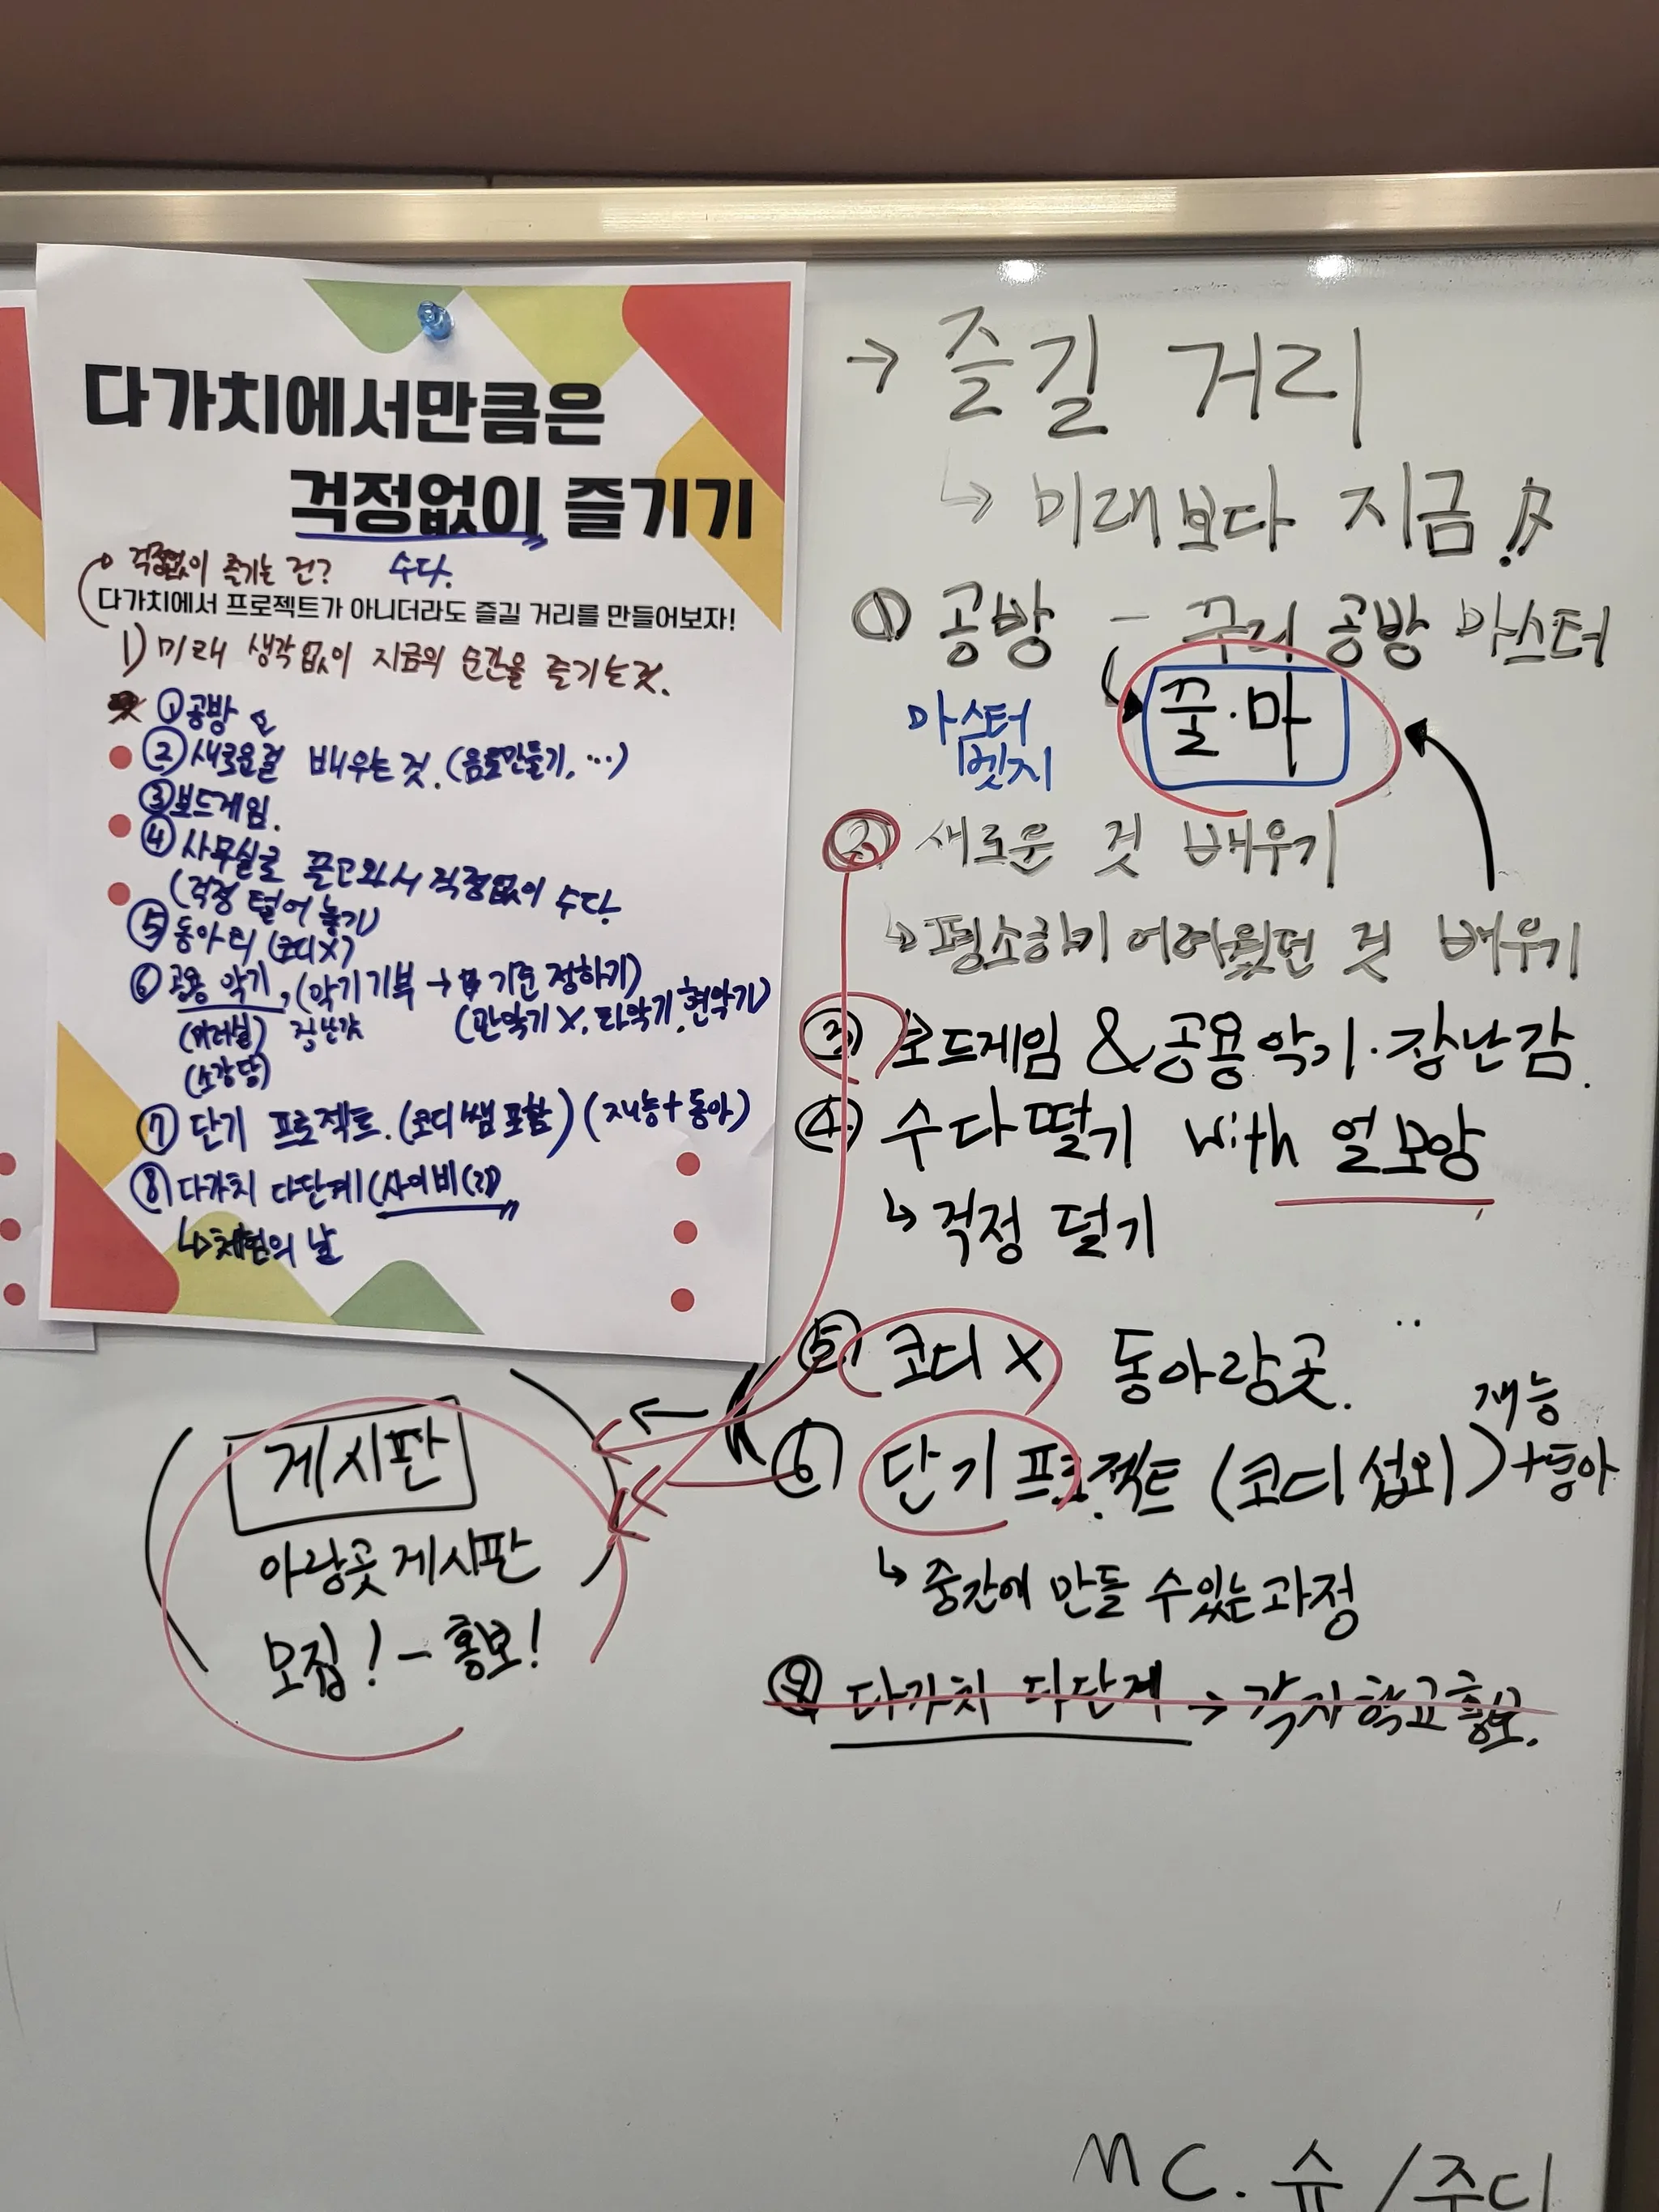 다가치에서만큼은
걱정없이 즐기기
걱정없이 즐기는 건? 수다.
다가치에서 프로젝트가 아니더라도 즐길 거리를 만들어보자!
1) 미래 생각없이 지금의 순간을 즐기는것.
① 공방
② 새로운걸 배우는 것. (음료만들기, …)
③ 보드게임.
④ 사무실로 끌고와서 걱정없이 수다.
(걱정 털어 놓기)
⑤ 동아리 (코디X)
⑥ 공용 악기, (악기기부 → 기준 정하기)
장난감 (관악기 X, 타악기, 현악기)
(소강당)
⑦ 단기 프로젝트. (코디쌤 포함) (재능+동아)
⑧ 다가치 다단계 (사이비(?))
↳ 체험의 날
→ 즐길 거리
↳ 미래보다 지금!!
① 공방 - 꾸러 공방 마스터
마스터
벳지
꿀·마
② 새로운 것 배우기
↳ 평소하기 어려웠던 것 배우기
③ 보드게임 & 공용악기·장난감.
④ 수다떨기 with 얼모앙
↳ 걱정 덜기
⑤ 코디 X 동아랑곳.
⑥ 단기 프로젝트 (코디 섭외) + 동아
재능
↳ 중간에 만들 수있는 과정
다가치 다단계 → 각자 학교 홍보.
게시판
아랑곳 게시판
모집! - 홍보!
MC. 슈 / 주디